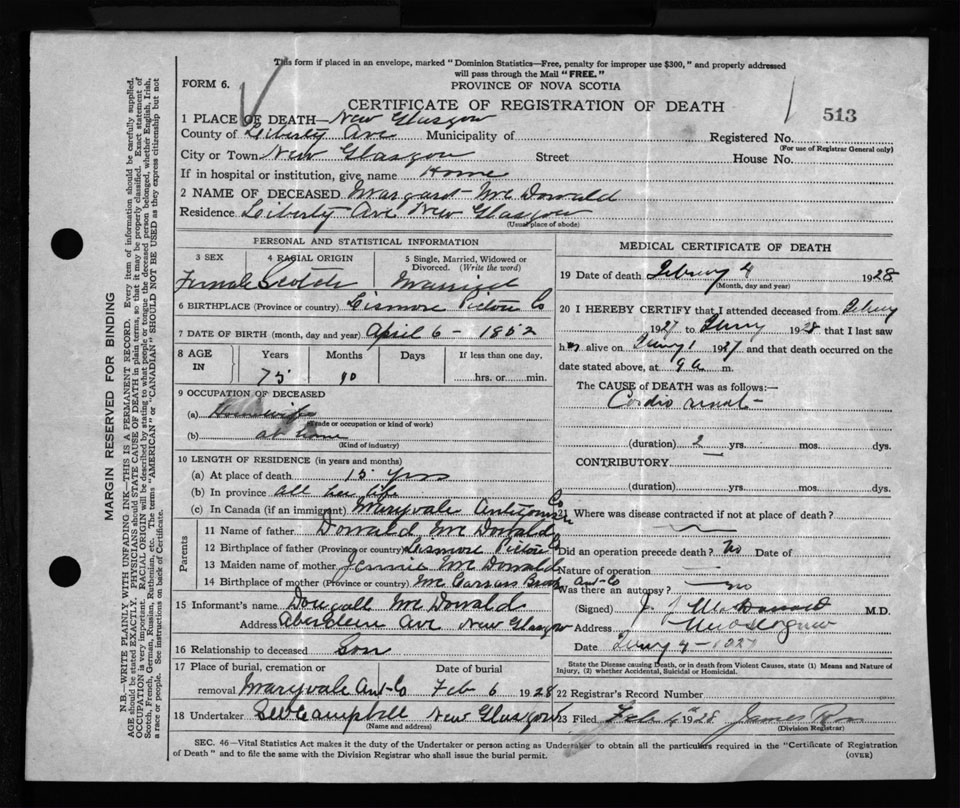 This form if placed in an envelope, marked "Dominion Statistics—Free, penalty for improper use $300," and properly addressed
will pass through the Mail "FREE."
FORM 6.
PROVINCE OF NOVA SCOTIA
CERTIFICATE OF REGISTRATION OF DEATH
513
1 PLACE OF DEATH— New Glasgow
County of Liberty Ave Municipality of Registered No.
(For use of Registrar General only)
City or Town New Glasgow Street House No.
If in hospital or institution, give name Home
2 NAME OF DECEASED Margaret McDonald
Residence Liberty Ave New Glasgow
(Usual place of abode)
PERSONAL AND STATISTICAL INFORMATION
3 SEX 4 RACIAL ORIGIN 5 Single, Married, Widowed or Divorced. (Write the word)
Female Scotch Married
6 BIRTHPLACE (Province or country) Lismore Pictou Co
7 DATE OF BIRTH (month, day and year) April 6 - 1852
8 AGE IN Years Months Days If less than one day,
75 10 hrs. or min.
9 OCCUPATION OF DECEASED
(a) Housewife
(Trade or occupation or kind of work)
(b) at home
(Kind of industry)
10 LENGTH OF RESIDENCE (in years and months)
(a) At place of death 15 yrs
(b) In province all her life
(c) In Canada (if an immigrant) Maryvale Antigonish Co
Parents
11 Name of father Donald McDonald
12 Birthplace of father (Province or country) Lismore Pictou Co
13 Maiden name of mother Jennie McDonald
14 Birthplace of mother (Province or country) Ant-Co
15 Informant's name Dougall McDonald
Address Aberdeen Ave New Glasgow
16 Relationship to deceased Son
17 Place of burial, cremation or Date of burial
removal Maryvale Ant-Co Feb 6 1928
18 Undertaker Campbell New Glasgow
(Name and address)
MEDICAL CERTIFICATE OF DEATH
19 Date of death 4 1928
(Month, day and year)
20 I HEREBY CERTIFY that I attended deceased from
1927 to 1928 that I last saw
her alive on 1 1927 and that death occurred on the
date stated above, at 9 a m.
The CAUSE of DEATH was as follows:—
Cardio renal
(duration) 2 yrs. mos. dys.
CONTRIBUTORY.
(duration) yrs. mos. dys.
21 Where was disease contracted if not at place of death?
Did an operation precede death? No Date of
Nature of operation
Was there an autopsy? no
(Signed) J. McDonald M.D.
Address New Glasgow
Date
State the Disease causing Death, or in death from Violent Causes, state (1) Means and Nature of
Injury, (2) whether Accidental, Suicidal or Homicidal.
22 Registrar's Record Number
23 Filed Feb 4th 1928 James
(Division Registrar)
SEC. 46—Vital Statistics Act makes it the duty of the Undertaker or person acting as Undertaker to obtain all the particulars required in the "Certificate of Registration
of Death" and to file the same with the Division Registrar who shall issue the burial permit.
(OVER)
MARGIN RESERVED FOR BINDING
N.B.—WRITE PLAINLY WITH UNFADING INK—THIS IS A PERMANENT RECORD. Every item of information should be carefully supplied.
AGE should be stated EXACTLY. PHYSICIANS should STATE CAUSE OF DEATH in plain terms, so that it may be properly classified. Exact statement of
OCCUPATION is very important. RACIAL ORIGIN will be described by stating to what people or tongue the deceased person belonged, whether English, Irish,
Scotch, French, German, Russian, Ruthenian, etc. The terms "AMERICAN" or "CANADIAN" SHOULD NOT BE USED as they express citizenship but not
a race or people. See instructions on back of Certificate.